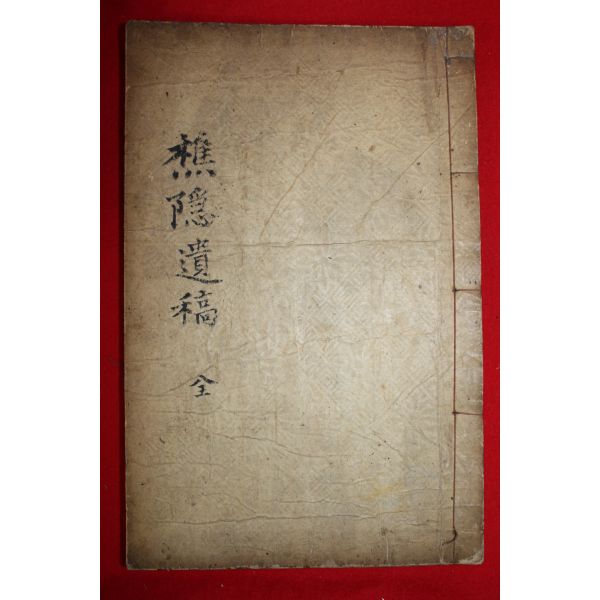 樵隠遺稿 全